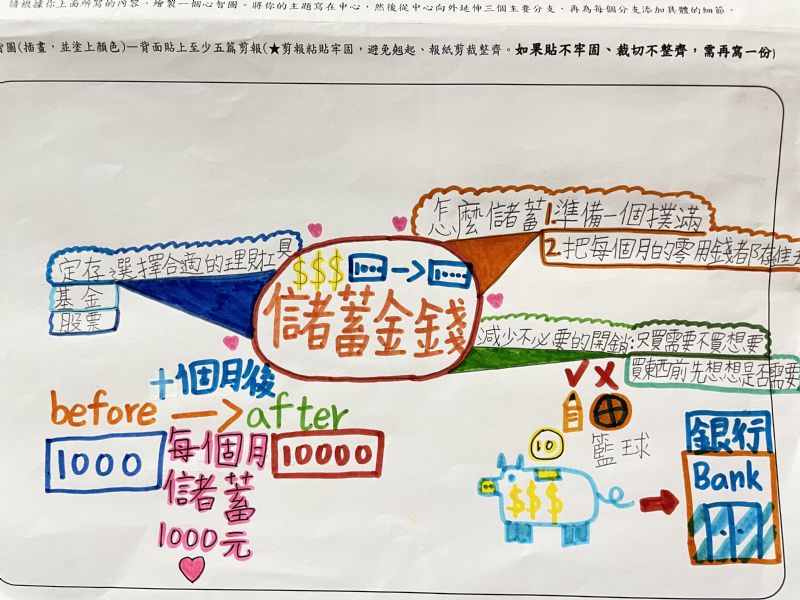 請根據你上面所寫的內容,繪製一個心智圖。將你的主題寫在中心,然後從中心向外延伸三個主要分支,再為每個分支添加具體的細節。
智圖(插畫,並塗上顏色)—背面貼上至少五篇剪報(★剪報粘貼牢固,避免翹起、報紙剪裁整齊。如果貼不牢固、裁切不整齊,需再寫一份)
怎麼儲蓄
1.準備一個撲滿
2.把每個月的零用錢都存進去
定存
選擇合適的理財工具
基金
股票
$$$
儲蓄金錢
減少不必要的開銷:只買需要不買想要
買東西前先想想是否需要
十個月後
before
after
1000
每個月
儲蓄
1000元
10000
籃球
10
$$$
銀行
Bank